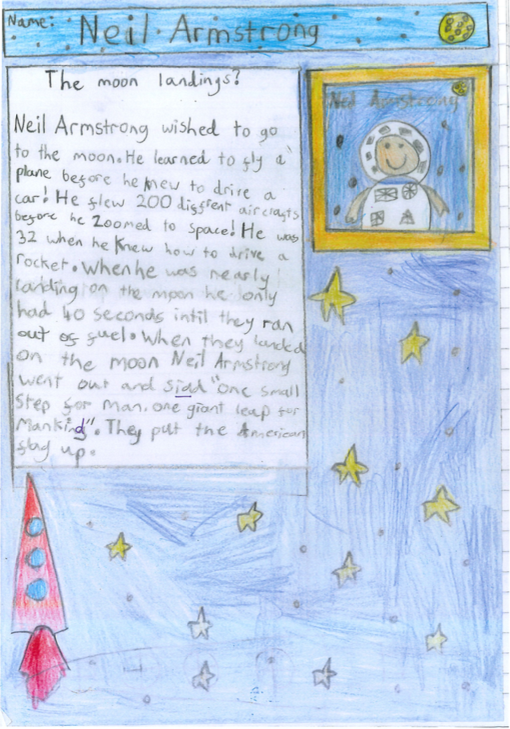 Name: Neil Armstrong
The moon landings?
Neil Armstrong wished to go
to the moon. He learned to fly a
plane before he knew to drive a
car! He flew 200 diffrent aircrafts
before he zoomed to space! He was
32 when he knew how to drive a
rocket. When he was nearly
landing on the moon he only
had 40 seconds intil they ran
out of fuel. When they landed
on the moon Neil Armstrong
went out and siad "one small
step for man. one giant leap for
Mankind". They put the American
flag up.
Neil Armstrong